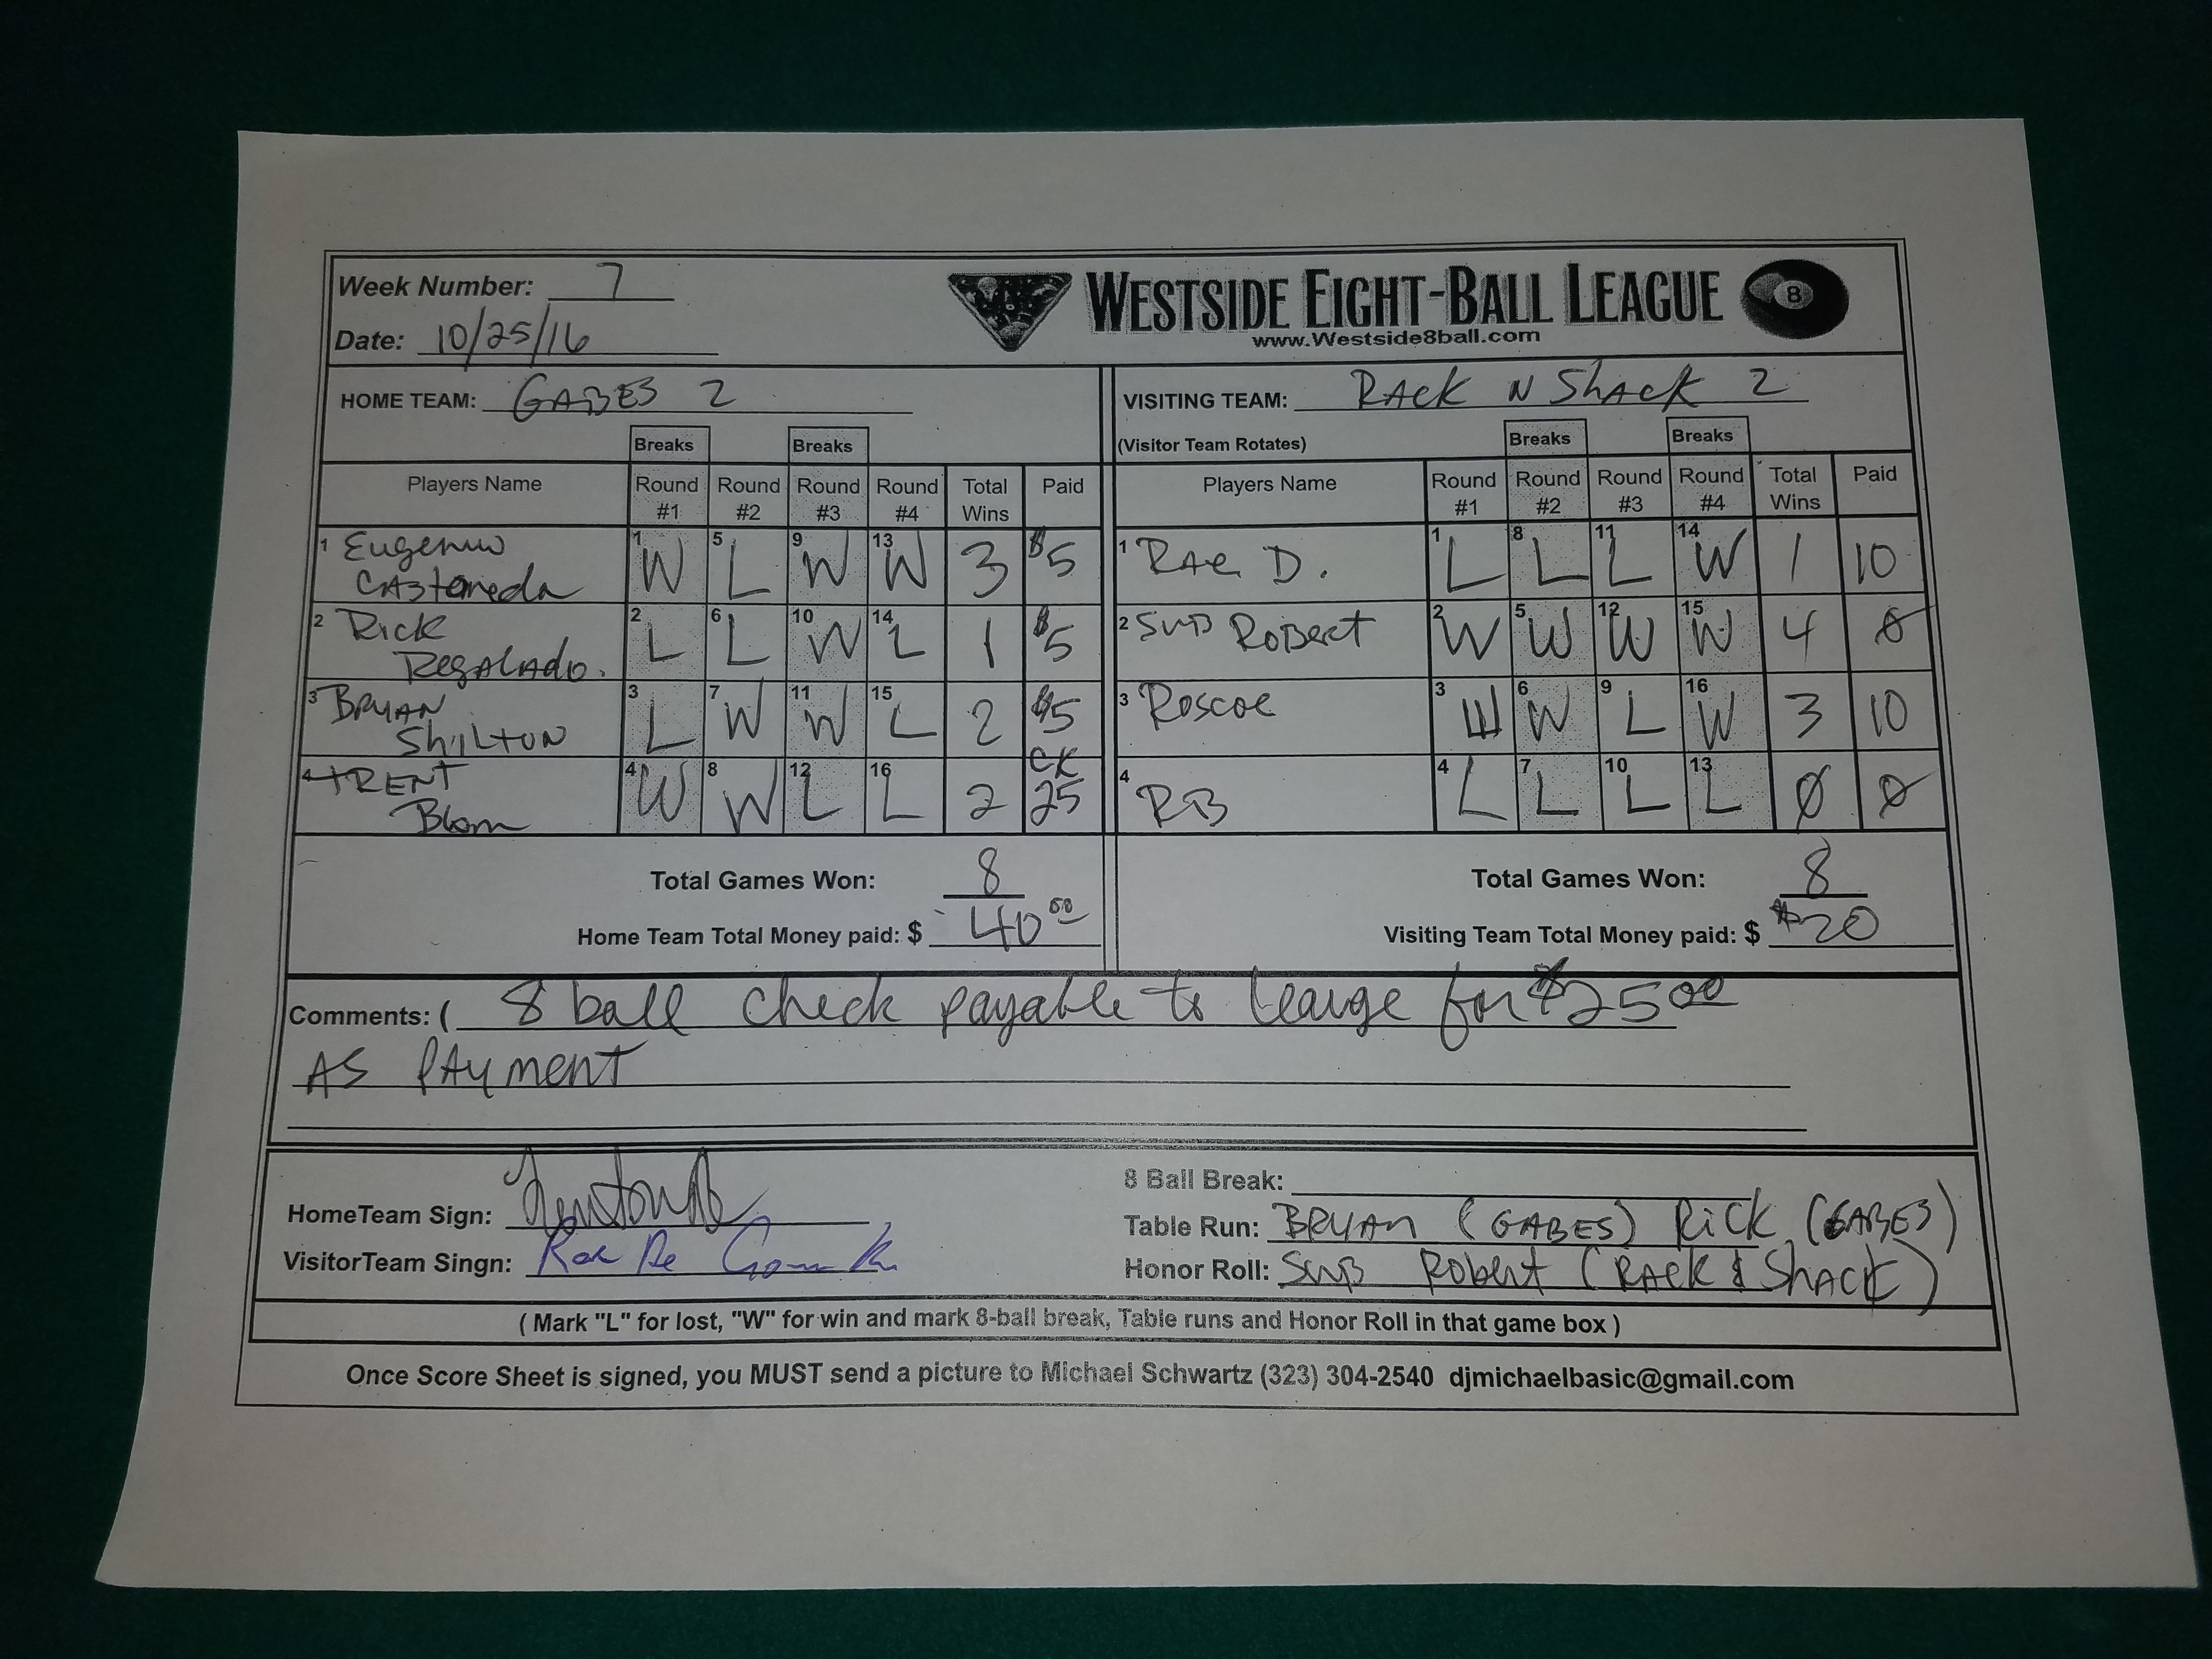 Week Number: 7
Date: 10/25/16
WESTSIDE EIGHT-BALL LEAGUE 8
www.Westside8ball.com
HOME TEAM: GABES 2
VISITING TEAM: RACK N SHACK 2
(Visitor Team Rotates)
Breaks Breaks
Breaks Breaks
Players Name Round #1 Round #2 Round #3 Round #4 Total Wins Paid
1 Eugenio Castaneda 1 W 5 L 9 W 13 W 3 $5
2 Rick Regalado. 2 L 6 L 10 W 14 L 1 $5
3 BRYAN Shilton 3 L 7 W 11 W 15 L 2 $5
4 TRENT Blom 4 W 8 W 12 L 16 L 2 CK 25
Total Games Won: 8
Home Team Total Money paid: $ 40.00
Players Name Round #1 Round #2 Round #3 Round #4 Total Wins Paid
1 Rae D. 1 L 8 L 11 L 14 W 1 10
2 SUB ROBERT 2 W 5 W 12 W 15 W 4 0
3 Roscoe 3 W 6 W 9 L 16 W 3 10
4 RB 4 L 7 L 10 L 13 L 0 0
Total Games Won: 8
Visiting Team Total Money paid: $ $20
Comments: ( 8 ball check payable to leauge for $25 00
AS PAYMENT
HomeTeam Sign:
VisitorTeam Singn: Rae De
8 Ball Break:
Table Run: BRYAN (GABES) Rick (GABES)
Honor Roll: SUB Robert (RACK & SHACK)
( Mark "L" for lost, "W" for win and mark 8-ball break, Table runs and Honor Roll in that game box )
Once Score Sheet is signed, you MUST send a picture to Michael Schwartz (323) 304-2540 djmichaelbasic@gmail.com